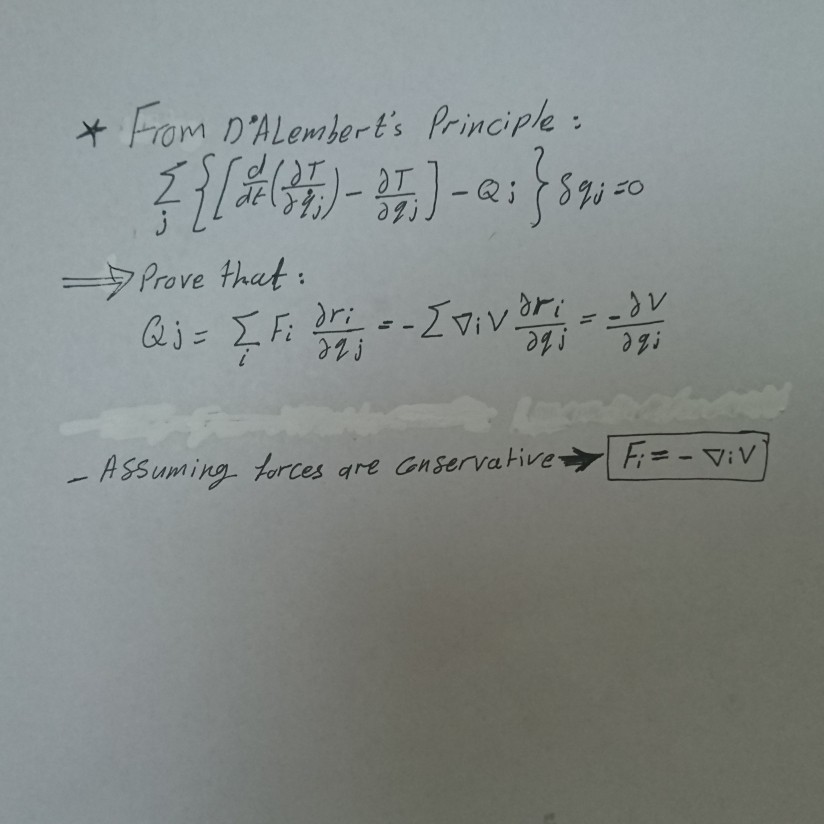 * From D'ALembert's Principle :
∑_j { [ d/dt (∂T/∂q̇_j) − ∂T/∂q_j ] − Q_j } δq_j = 0
⟹ Prove that :
Q_j = ∑_i F_i ∂r_i/∂q_j = − ∑ ∇_i V ∂r_i/∂q_j = −∂V/∂q_j
- Assuming forces are conservative → F_i = − ∇_i V